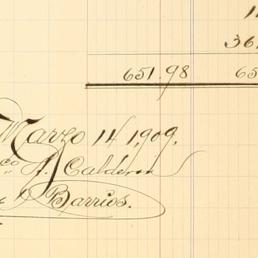 36
651.98 65
Marzo 14 1909.
co A. Calderon
Barrios.